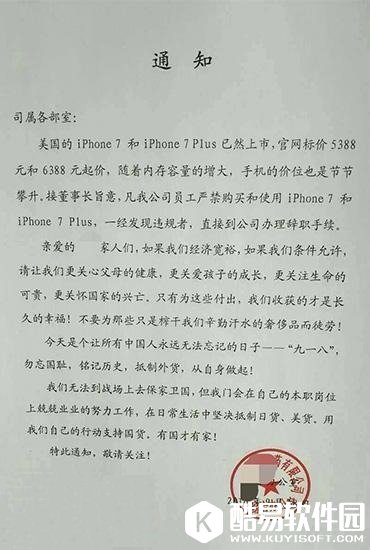 通 知
司属各部室：
美国的 iPhone 7 和 iPhone 7 Plus 已然上市，官网标价 5388
元和 6388 元起价，随着内存容量的增大，手机的价位也是节节
攀升。接董事长旨意，凡我公司员工严禁购买和使用 iPhone 7 和
iPhone 7 Plus，一经发现违规者，直接到公司办理辞职手续。
亲爱的 家人们，如果我们经济宽裕，如果我们条件允许，
请让我们更关心父母的健康，更关爱孩子的成长，更关注生命的
可贵，更关怀国家的兴亡。只有为这些付出，我们收获的才是长
久的幸福！不要为那些只是榨干我们辛勤汗水的奢侈品而徒劳！
今天是个让所有中国人永远无法忘记的日子——“九一八”，
勿忘国耻，铭记历史，抵制外货，从自身做起！
我们无法到战场上去保家卫国，但我门会在自己的本职岗位
上兢兢业业的努力工作，在日常生活中坚决抵制日货、美货。用
我们自己的行动支持国货。有国才有家！
特此通知，敬请关注！
药有限公司
办公室
K 酷易软件园
WWW.KUYISOFT.COM